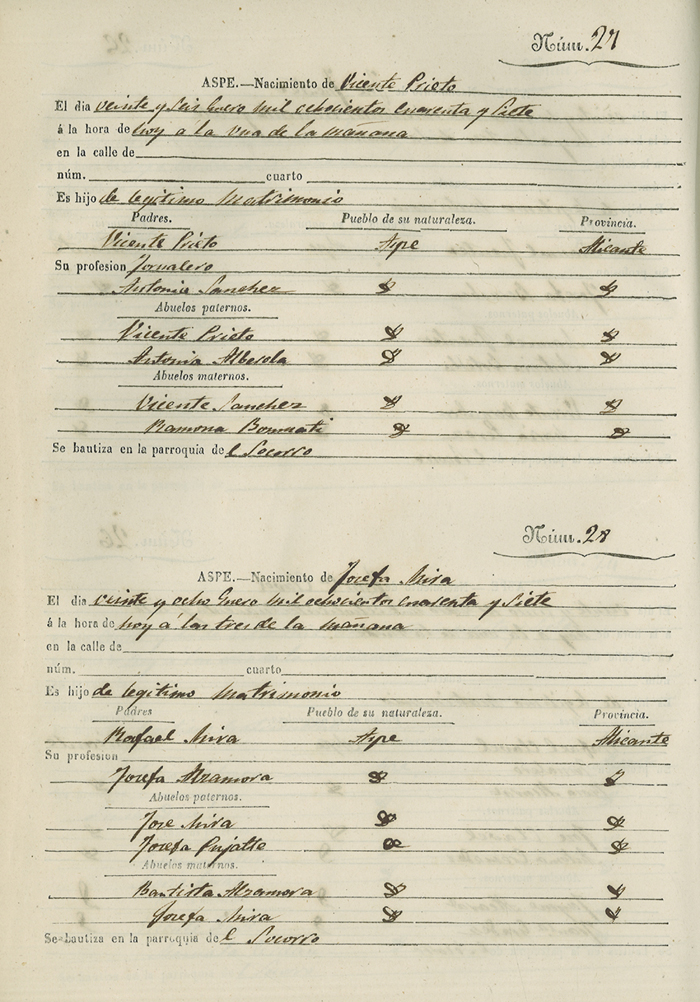 Núm. 27
ASPE.—Nacimiento de Vicente Prieto
El dia veinte y seis Enero mil ochocientos cuarenta y siete
á la hora de hoy a la una de la mañana
en la calle de
núm. cuarto
Es hijo de legitimo Matrimonio
Padres. Pueblo de su naturaleza. Provincia.
Vicente Prieto Aspe Alicante
Su profesion Jornalero
Antonia Sanchez
Abuelos paternos.
Vicente Prieto
Antonia Alberola
Abuelos maternos.
Vicente Sanchez
Ramona Bonmati
Se bautiza en la parroquia del Socorro
Núm. 28
ASPE.—Nacimiento de Josefa Mira
El dia veinte y ocho Enero mil ochocientos cuarenta y siete
á la hora de hoy a las tres de la mañana
en la calle de
núm. cuarto
Es hijo de legitimo matrimonio
Padres Pueblo de su naturaleza. Provincia.
Rafael Mira Aspe Alicante
Su profesion
Josefa Alzamora
Abuelos paternos.
Jose Mira
Josefa Pujalte
Abuelos maternos.
Bautista Alzamora
Josefa Mira
Se bautiza en la parroquia del Socorro